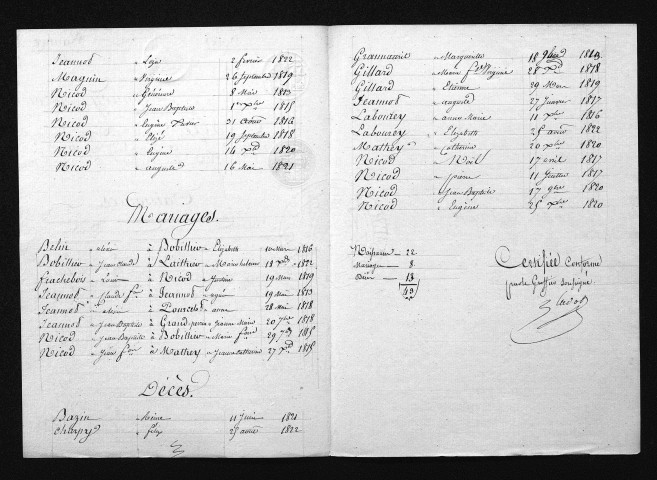 Jeannod " Lize 2 février 1822
Maguin " Virginie 26 Septembre 1819
Nicod " Génereuse 8 Mai 1813
Nicod " Jean Baptiste 1er Xbre 1815
Nicod " Eugène Victor 31 1816
Nicod " Elizé 19 Septembre 1818
Nicod " Eugène 14 Xbre 1820
Nicod " auguste 16 Mai 1821
Mariages.
Belin " à Bobillier " Elizabeth 1816
Bobillier " Jean Claude à Laithier " Marie 18 1822
Frachebois " Louis à Nicod " Justine 19 Mars 1819
Jeannod " Claude fs. à Jeannod " 19 Mai 1813
Jeannod " à Poncet " anne 28 Mai 1818
Jeannod " Jean Baptiste à Grand perrin " Jeanne Marie 20 7bre 1818
Nicod " Jean Baptiste à Bobillier " Marie fse. 29 7bre 1815
Nicod " Jean fs. à Mathey " Jeanne Catherine 27 1815
Décès.
Bazin " 11 Juin 1821
Charpy " félix 25 1822
Gramawil " Marguerite 18 9bre 1813
Gillard " Marie fse. Virginie 28 Xbre 1818
Gillard " Etienne 29 Mars 1819
Jeannod " auguste 27 Janvier 1817
Labourey " anne Marie 11 Xbre 1816
Labourey " Elizabeth 25 avril 1822
Mathey " Catherine 20 Xbre 1820
Nicod " Noël 17 avril 1817
Nicod " pierre 11 1817
Nicod " Jean Baptiste 17 9bre 1820
Nicod " Eugène 25 Xbre 1820
Naissances — 22
Mariages — 8
Décès — 13
43
Certifiée Conforme
par le Greffier soussigné